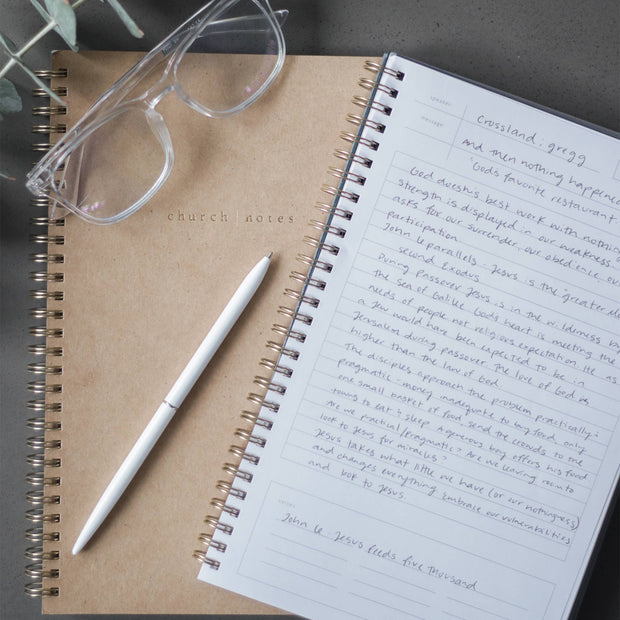 church | notes
speaker
Crossland: gregg
message
And then nothing happened
"God's favorite restaurant
God does his best work with nothing
strength is displayed in our weakness.
asks for our surrender, our obedience, our
participation.
John 6 parallels Jesus is the "greater
second Exodus
During Passover Jesus is in the wilderness by
the sea of Galilee God's heart is meeting the
needs of people not religious expectation. He as
a Jew would have been expected to be in
Jerusalem during passover The love of God is
higher than the law of God
The disciples approach the problem practically:
pragmatic - money inadequate to buy food only
one small basket of food send the crowds to the
towns to eat & sleep A generous boy offers his food
Are we practical/pragmatic? Are we leaving room to
look to Jesus for miracles?
Jesus takes what little we have (or our nothingness)
and changes everything Embrace our vulnerabilities
and look to Jesus.
John 6. Jesus feeds five thousand